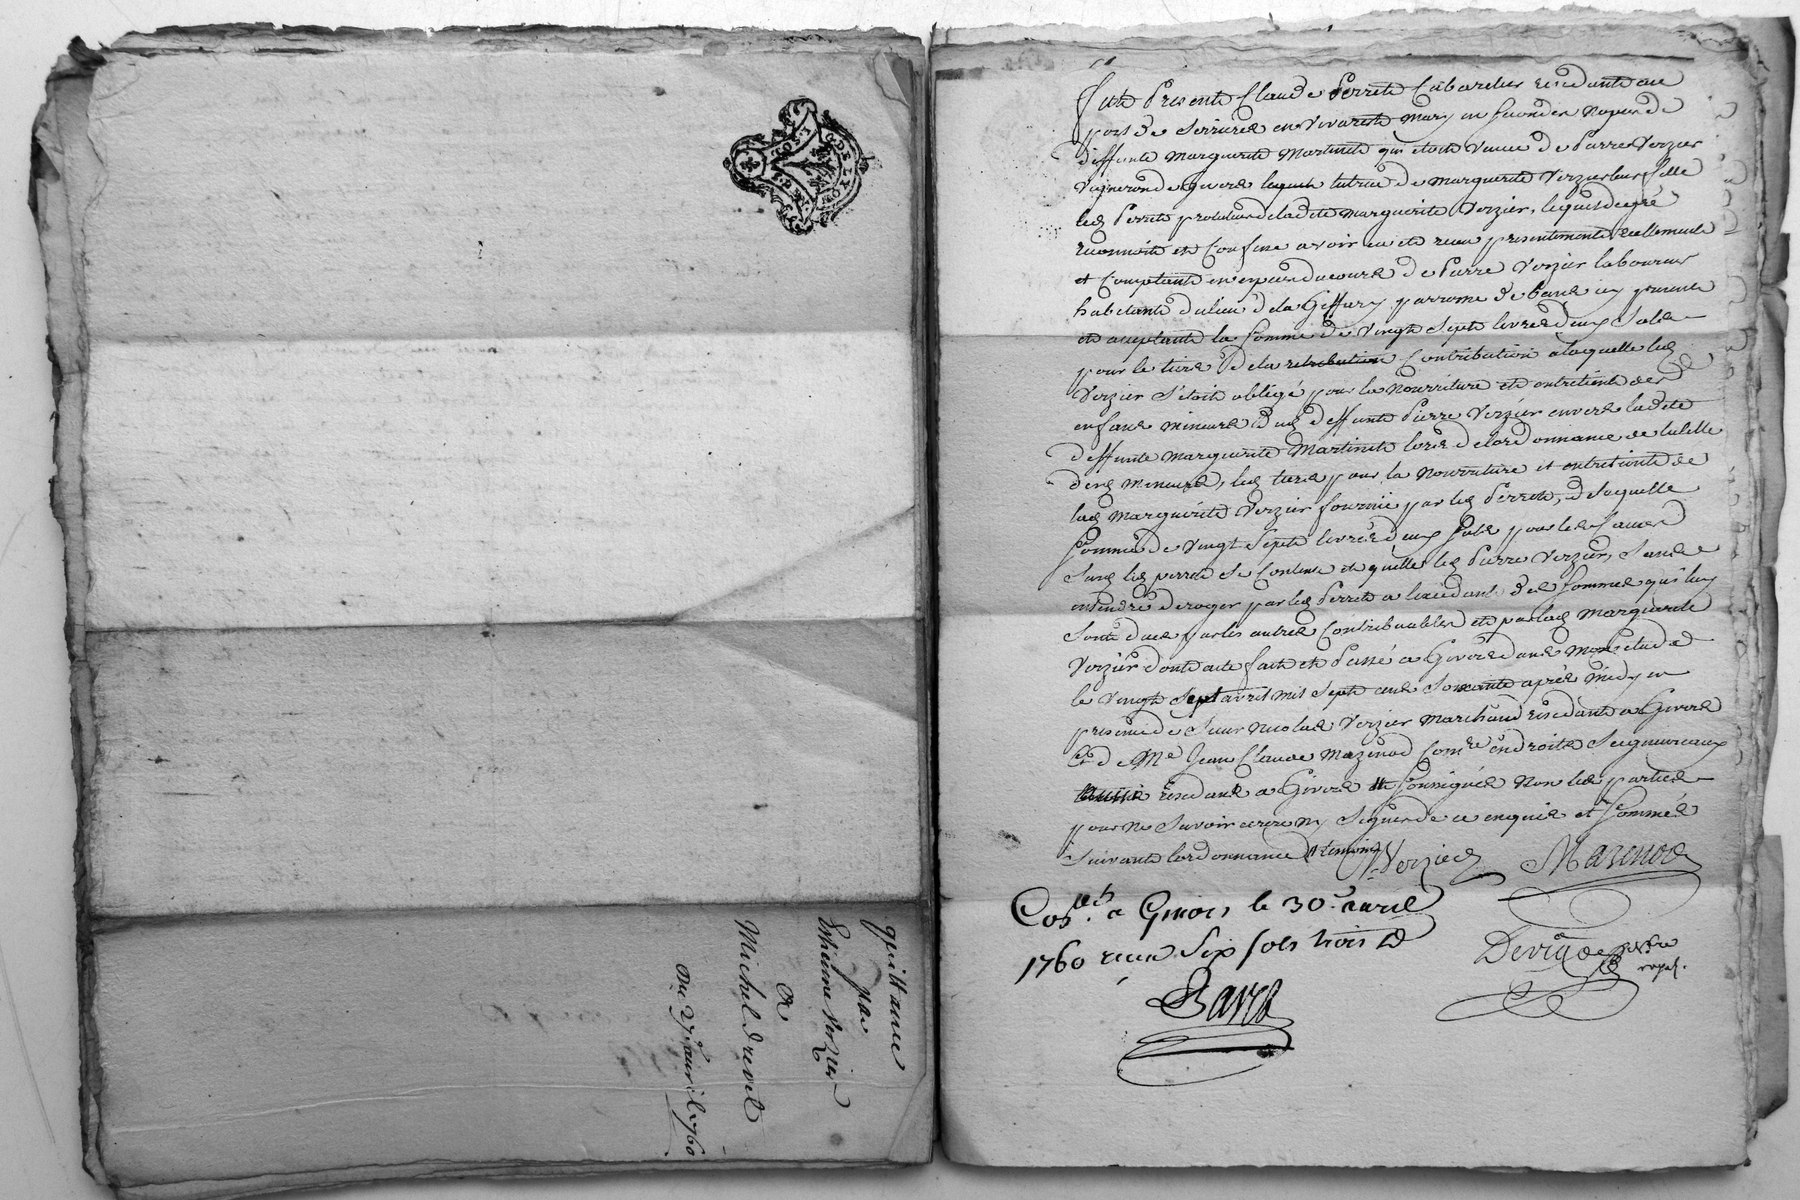 G. DE LYON
quittance
par
Estienne Verzier
a
Michel drevet
Du 27e. avril 1760
fut Present Claude Perret Cabaretier residant au
port de Serrieres en Vivarest mary en secondes Nopces de
deffunte marguerite Martinet qui etoit veuve de Pierre Verzier
Vigneron de givors tutrice de marguerite Verzier leur fille
led. Perret de ladte marguerite Verzier, lequel de gré
reconnoit et Confesse avoir eu et receu presentement reellement
et Comptant de Pierre Verzier laboureur
habitant du lieu de la Giffary parroisse de cy present
et acceptant la somme de Vingt Sept livres deux Sols
pour le tiers de la retribution Contribution a laquelle led.
Verzier S'etoit obligé pour la Nourriture et entretient des
enfans mineurs dud. deffunt Pierre Verzier envers ladte
deffunte marguerite Martinet lors de lordonnance de tutelle
desd. mineurs, led. tiers pour la Nourriture et entretient de
lad. Marguerite Verzier fournie par led. Perret, de laquelle
somme de Vingt Sept livres deux Sols pour les Causes
Susd. led. perret se Contente et quitte led. Pierre Verzier, Sans
entendre deroger par led. Perret a des sommes qui luy
Sont dues par les autres Contribuables et par lad. Marguerite
Verzier dont acte fait et Passé a Givors dans mon etude
le Vingt Sept avril mil Sept cens Soixante après midy en
presence de Sieur Nicolas Verzier Marchand residant a Givors
Et de Me Jean Claude Mazenod Comre en droits Seigneuriaux
residant a Givors Soussignés Non les parties
pour ne Savoir ecrire ny Signer de ce enquis et Sommés
Suivant lordonnance
Verzier Mazenod
Conlé. a Givors le 30e. avril
1760 receu Six sols trois d
Devigne nore
royal.